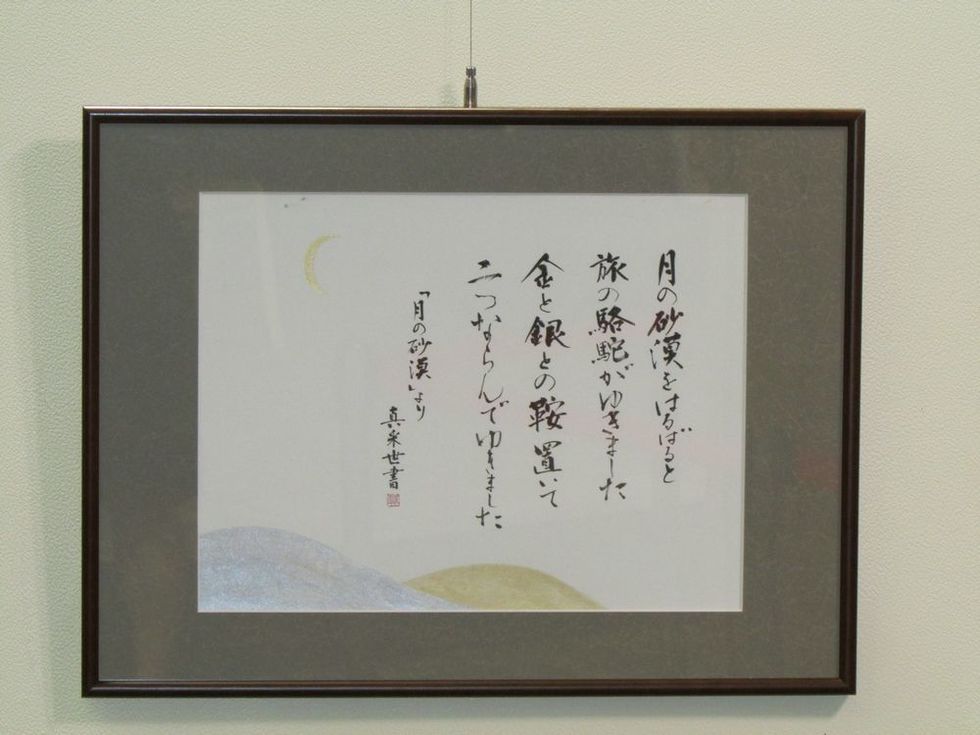 月の砂漠をはるばると
旅の駱駝がゆきました
金と銀との鞍置いて
二つならんでゆきました
「月の砂漠」より
真采世書